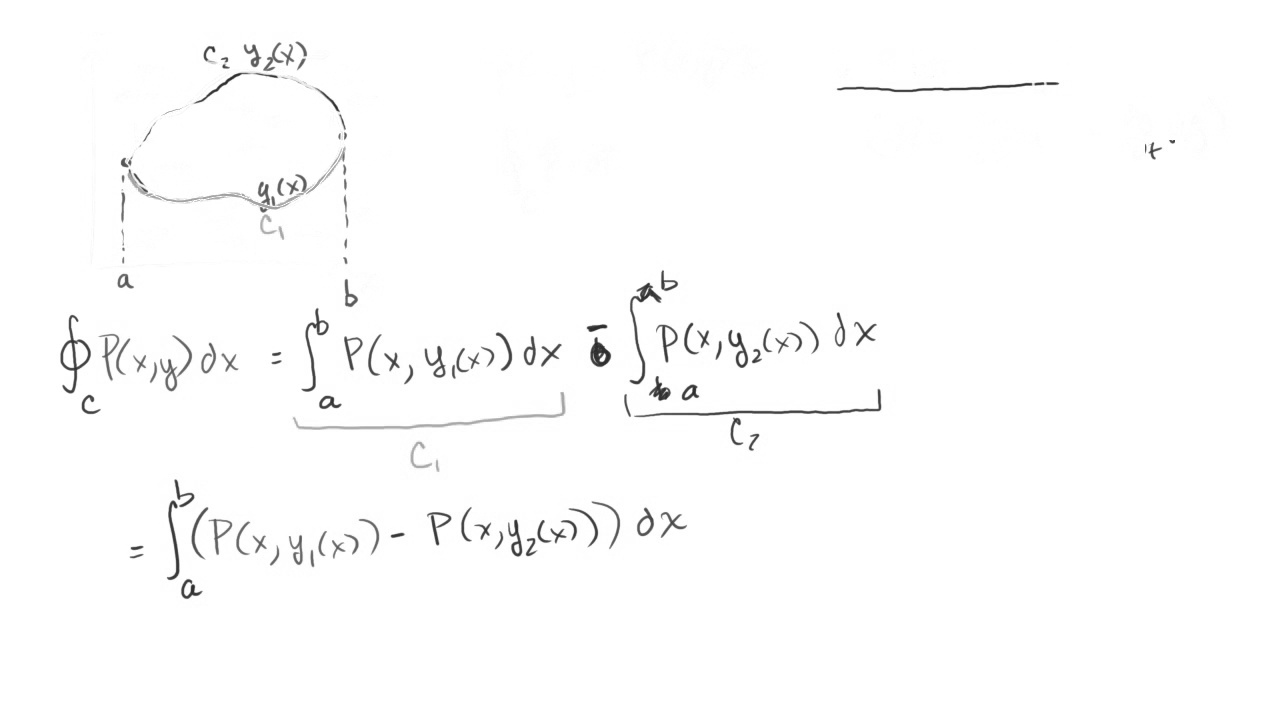 C₂ y₂(x)
y₁(x)
C₁
a b
∮_C P(x,y) dx = ∫_a^b P(x, y₁(x)) dx - ∫_a^b P(x, y₂(x)) dx
C₁ C₂
= ∫_a^b (P(x, y₁(x)) - P(x, y₂(x))) dx